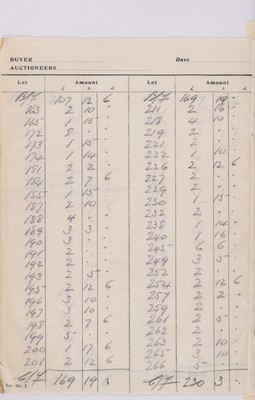 BUYER
Date
AUCTIONEERS
Lot Amount Lot Amount
£ s. d. £ s. d.
B/F 107 12 6
163 2 10 ·
165 1 15 ·
172 8 · ·
173 1 15 ·
174 1 14 ·
181 2 2 ·
184 2 7 6
185 1 15 ·
187 2 10 ·
188 4 · ·
189 3 3 ·
190 3 · ·
191 2 · ·
192 2 · ·
193 2 5 ·
195 2 12 6
196 3 10 ·
197 3 10 ·
198 2 7 6
199 5 · ·
200 1 17 6
201 2 12 6
C/F 169 19
B/F 169 19 ·
211 2 16 ·
218 4 10 ·
219 2 · ·
221 2 · ·
222 1 10 ·
226 2 12 6
227 2 · ·
229 2 · ·
230 1 15 ·
232 2 · ·
238 1 14 ·
240 1 16 ·
245 6 6 ·
249 3 5 ·
252 2 · ·
254 2 12 6
257 2 2 ·
259 2 · ·
261 2 5 ·
262 2 · ·
263 2 10 ·
265 3 10 ·
266 5 · ·
C/F 230 3 ·